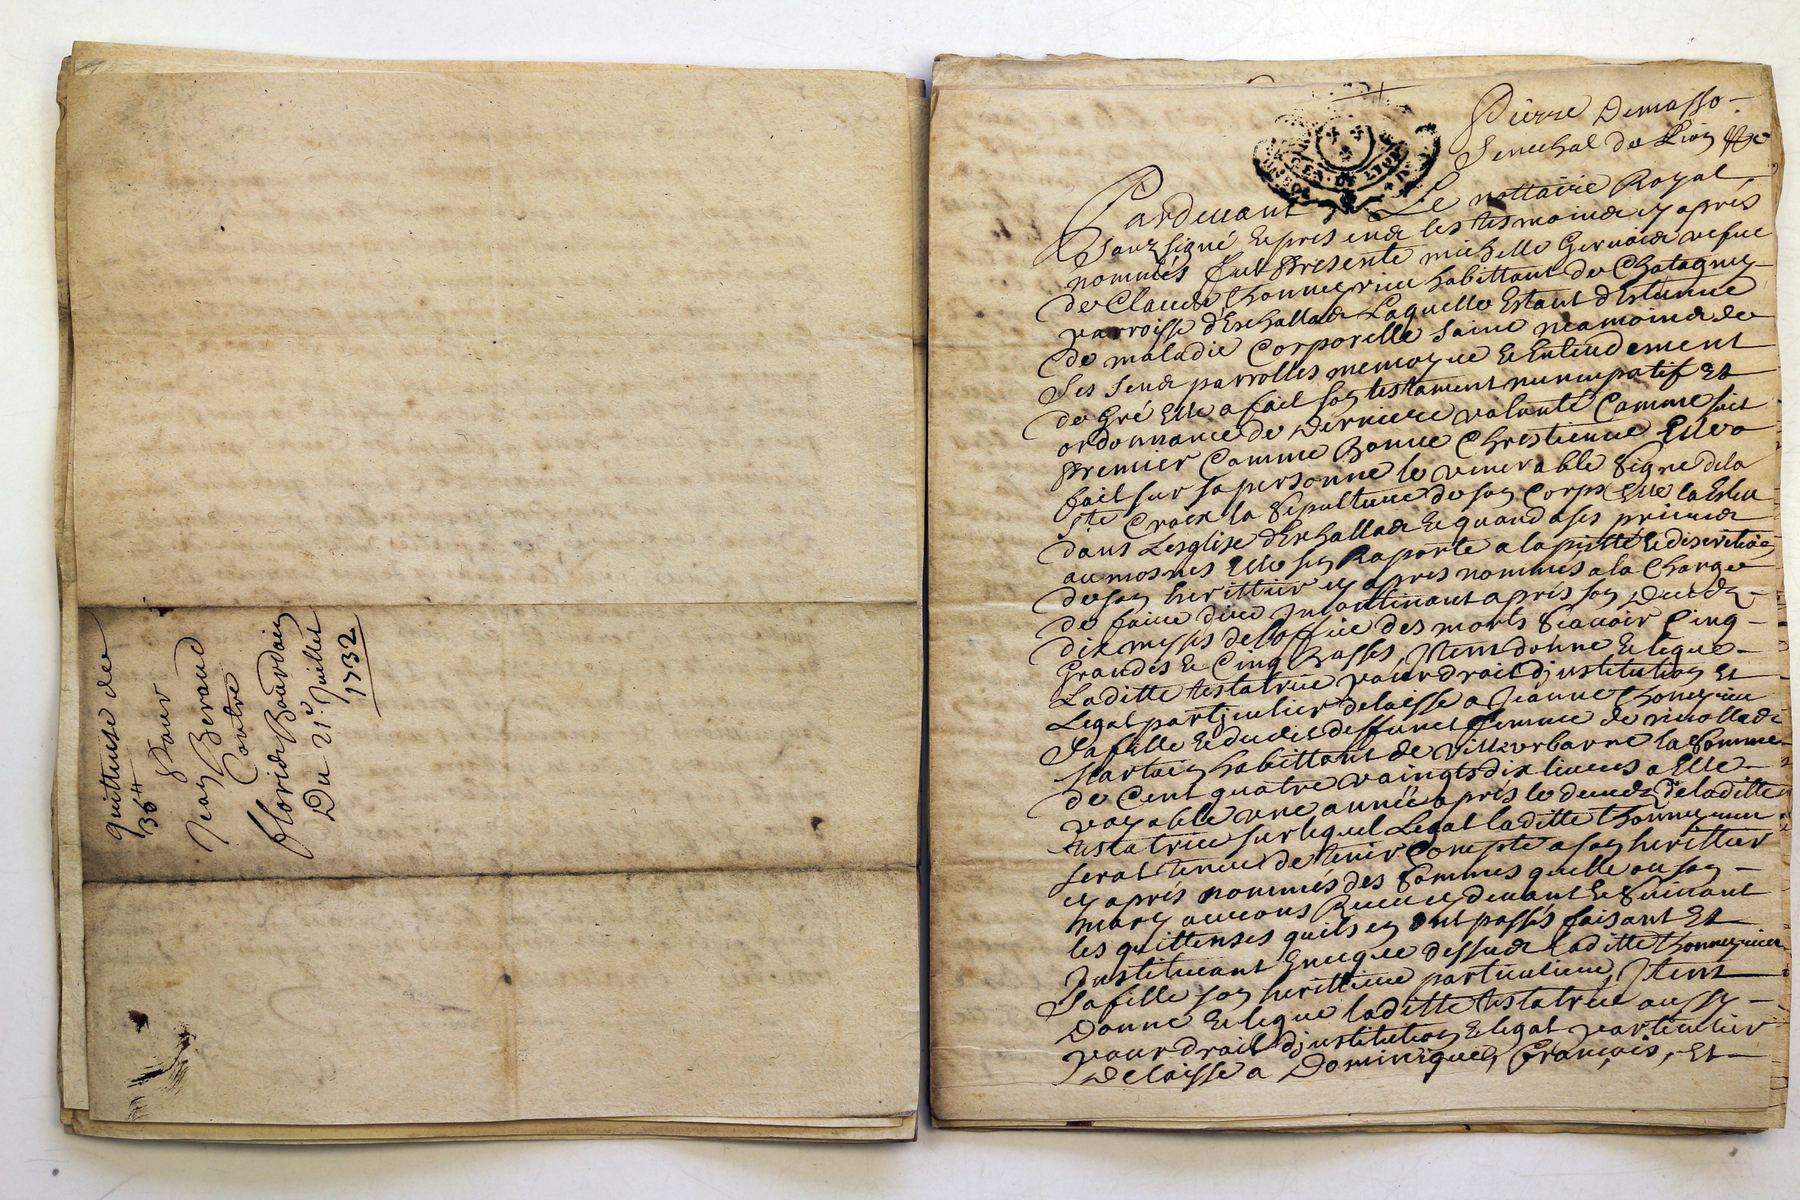 quittense de
36ᵗᵗ
pour
Jean Beraud
Contre
Floride Bourdain
Du 21ᵉ Juillet
1732
Pierre Demasso
Senechal de Lion &c
DE LYON
Pardevant Le nottaire Royal
Souzsigné et presends les tesmoinds cy apres
nommés fut presente michelle Gervaids vefue
de Claude thonnerieu habittant de Chatagny
parroisse d'Eschallads Laquelle Estant d'Estenue
de maladie Corporelle saine neamoinds de
ses sends parrolles memoyre et Entendement
de Gré Elle a fait son testament nuncupatif Et
ordonnance de Derniere volonté Comme suit
Premier Comme Bonne Chrestienne Elle a
fait sur sa personne le venerable Signe de la
ste Croix la Sepulture de son Corps Elle la Esleu
dans Lesglise d'Eschallads et quand a ses prierds
aumosnes Elle sen Raporte a la pietté et discretion
de son herittier cy apres nommés a la Charge
de faire dire Incontinant apres son decedz
dix messes de loffice des morts Scavoir Cinq
Grandes et Cinq Basses, Item donne et legue
Laditte testatrice pour droit d'jnstitution Et
Legat particulier delaisse a Jeanne thonnerieu
sa fille et dudit deffunct femme de nicollads
habittant de Villeurbanne la Somme
de Cent quatre vaingts dix livres a Elle
payable une année apres le decedz de laditte
testatrice sur lequel Legat laditte thonnerieu
serat tenue de tenir Compte a son herittier
cy apres nommés des Sommes quelle ou son
mary auront Receu cy devant et Suivant
les quittenses quils en ont passés faisant Et
Instituant En ce que dessuds laditte thonnerieu
sa fille son herittiere particuliere, Item
Donne et legue laditte testatrice aussy
pour droit d'jnstitution et legat particulier
Delaisse a Dominique, François, Et